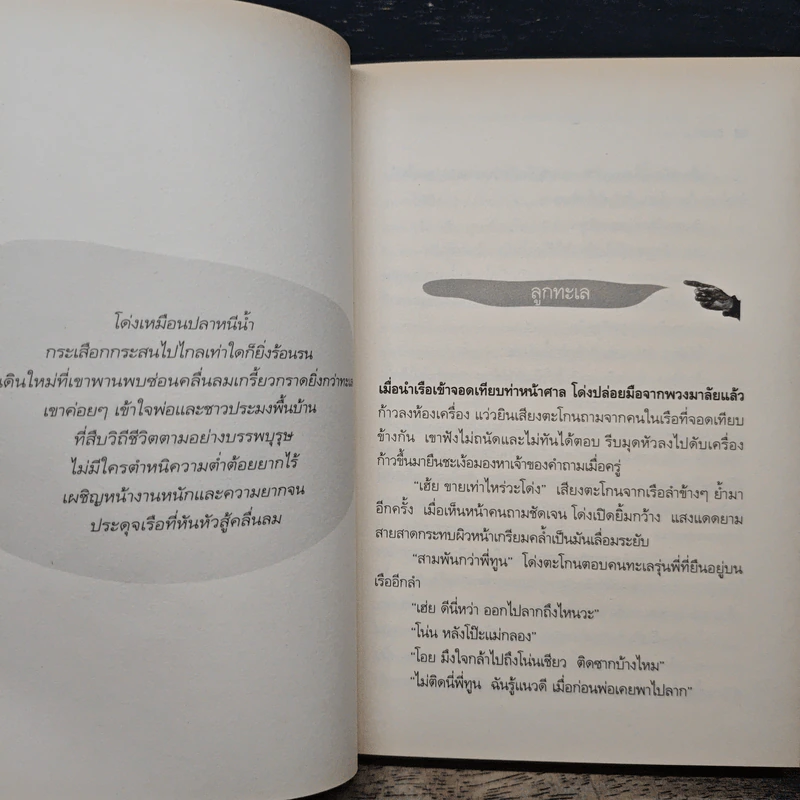 โด่งเหมือนปลาหนีน้ำ
กระเสือกกระสนไปไกลเท่าใดก็ยิ่งร้อนรน
เดินใหม่ที่เขาพานพบซ่อนคลื่นลมเกรี้ยวกราดยิ่งกว่าทะเล
เขาค่อยๆ เข้าใจพ่อและชาวประมงพื้นบ้าน
ที่สืบวิถีชีวิตตามอย่างบรรพบุรุษ
ไม่มีใครตำหนิความต่ำต้อยยากไร้
เผชิญหน้างานหนักและความยากจน
ประดุจเรือที่หันหัวสู้คลื่นลม
ลูกทะเล
เมื่อนำเรือเข้าจอดเทียบท่าหน้าศาล โด่งปล่อยมือจากพวงมาลัยแล้ว
ก้าวลงห้องเครื่อง แว่วยินเสียงตะโกนถามจากคนในเรือที่จอดเทียบ
ข้างกัน เขาฟังไม่ถนัดและไม่ทันได้ตอบ รีบมุดหัวลงไปดับเครื่อง
ก้าวขึ้นมายืนชะเง้อมองหาเจ้าของคำถามเมื่อครู่
"เฮ้ย ขายเท่าไหร่วะโด่ง" เสียงตะโกนจากเรือลำข้างๆ ย้ำมา
อีกครั้ง เมื่อเห็นหน้าคนถามชัดเจน โด่งเปิดยิ้มกว้าง แสงแดดยาม
สายสาดกระทบผิวหน้าเกรียมคล้ำเป็นมันเลื่อมระยับ
"สามพันกว่าพี่ทูน" โด่งตะโกนตอบคนทะเลรุ่นพี่ที่ยืนอยู่บน
เรืออีกลำ
"เฮ่ย ดีนี่หว่า ออกไปลากถึงไหนวะ"
"โน่น หลังโป๊ะแม่กลอง"
"โอย มึงใจกล้าไปถึงโน่นเชียว ติดซากบ้างไหม"
"ไม่ติดนี่พี่ทูน ฉันรู้แนวดี เมื่อก่อนพ่อเคยพาไปลาก"